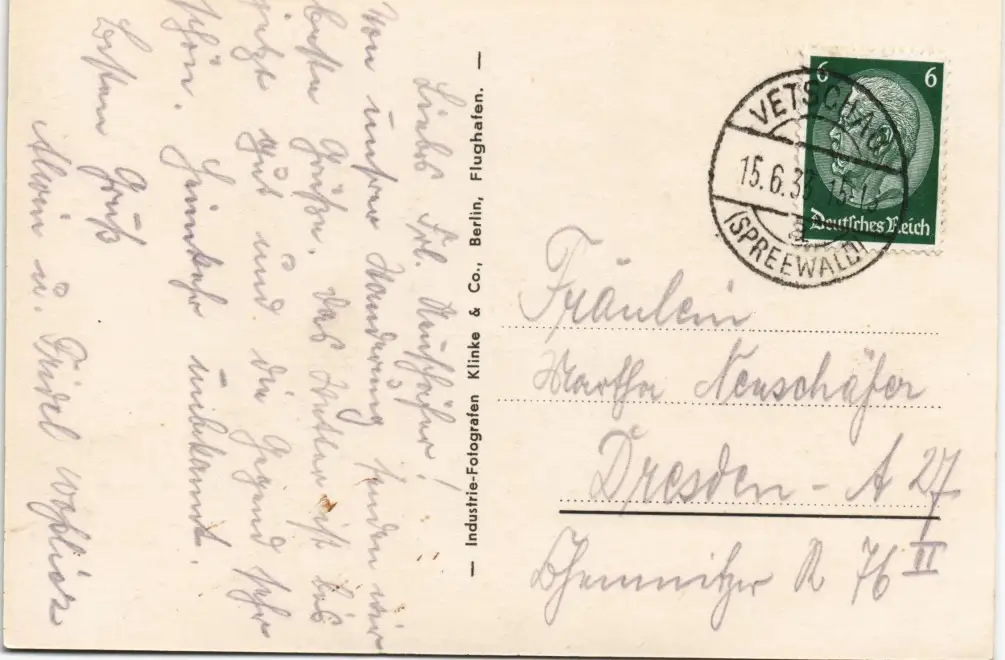 Liebes Frl. Neuschäfer!
Von unserer Wanderung senden wir
beste Grüße. Das Wetter ist bis
jetzt gut und die Gegend sehr
schön. Heimkehr unbekannt.
Besten Gruß
u. Friedel
— Industrie-Fotografen Klinke & Co., Berlin, Flughafen. —
6 6
Deutsches Reich
VETSCHAU
15.6.3
(SPREEWALD)
Fräulein
Martha Neuschäfer
Dresden - A 27
Chemnitzer 76 II